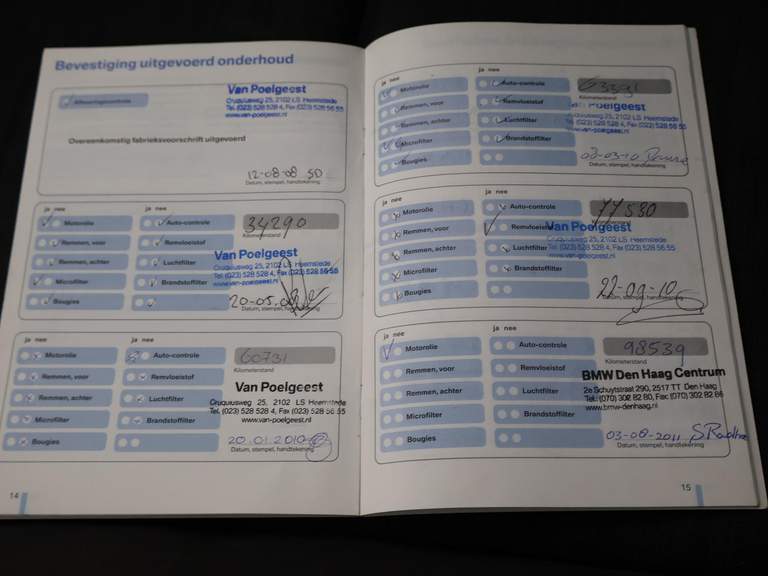 Bevestiging uitgevoerd onderhoud
Afleveringscontrole
Van Poelgeest
Cruquiusweg 25, 2102 LS Heemstede
Tel. (023) 528 528 4, Fax (023) 528 56 55
www.van-poelgeest.nl
Overeenkomstig fabrieksvoorschrift uitgevoerd
12-08-08
Datum, stempel, handtekening
ja nee
ja nee
Motorolie
Auto-controle
34290
Remmen, voor
Remvloeistof
Kilometerstand
Remmen, achter
Luchtfilter
Van Poelgeest
Cruquiusweg 25, 2102 LS Heemstede
Tel. (023) 528 528 4, Fax (023) 528 56 55
www.van-poelgeest.nl
Microfilter
Brandstoffilter
Bougies
20-05
Datum, stempel, handtekening
ja nee
ja nee
Motorolie
Auto-controle
60731
Remmen, voor
Remvloeistof
Kilometerstand
Remmen, achter
Luchtfilter
Van Poelgeest
Cruquiusweg 25, 2102 LS Heemstede
Tel. (023) 528 528 4, Fax (023) 528 56 55
www.van-poelgeest.nl
Microfilter
Brandstoffilter
Bougies
20.01.2010
Datum, stempel, handtekening
14
ja nee
ja nee
Motorolie
Auto-controle
Remmen, voor
Remvloeistof
Kilometerstand
Remmen, achter
Luchtfilter
Poelgeest
Cruquiusweg 25, 2102 LS Heemstede
Tel. (023) 528 528 4, Fax (023) 528 56 55
www.van-poelgeest.nl
Microfilter
Brandstoffilter
Bougies
02-03-10
Datum, stempel, handtekening
ja nee
ja nee
Motorolie
Auto-controle
77530
Remmen, voor
Remvloeistof
Remmen, achter
Luchtfilter
Van Poelgeest
Cruquiusweg 25, 2102 LS Heemstede
Tel. (023) 528 528 4, Fax (023) 528 56 55
www.van-poelgeest.nl
Microfilter
Brandstoffilter
Bougies
22-09-10
Datum, stempel, handtekening
ja nee
ja nee
Motorolie
Auto-controle
98539
Remmen, voor
Remvloeistof
Kilometerstand
BMW Den Haag Centrum
2e Schuytstraat 290, 2517 TT Den Haag
Tel.: (070) 302 82 80, Fax: (070) 302 82 86
www.bmw-denhaag.nl
Remmen, achter
Luchtfilter
Microfilter
Brandstoffilter
Bougies
03-08-2011
Datum, stempel, handtekening
15